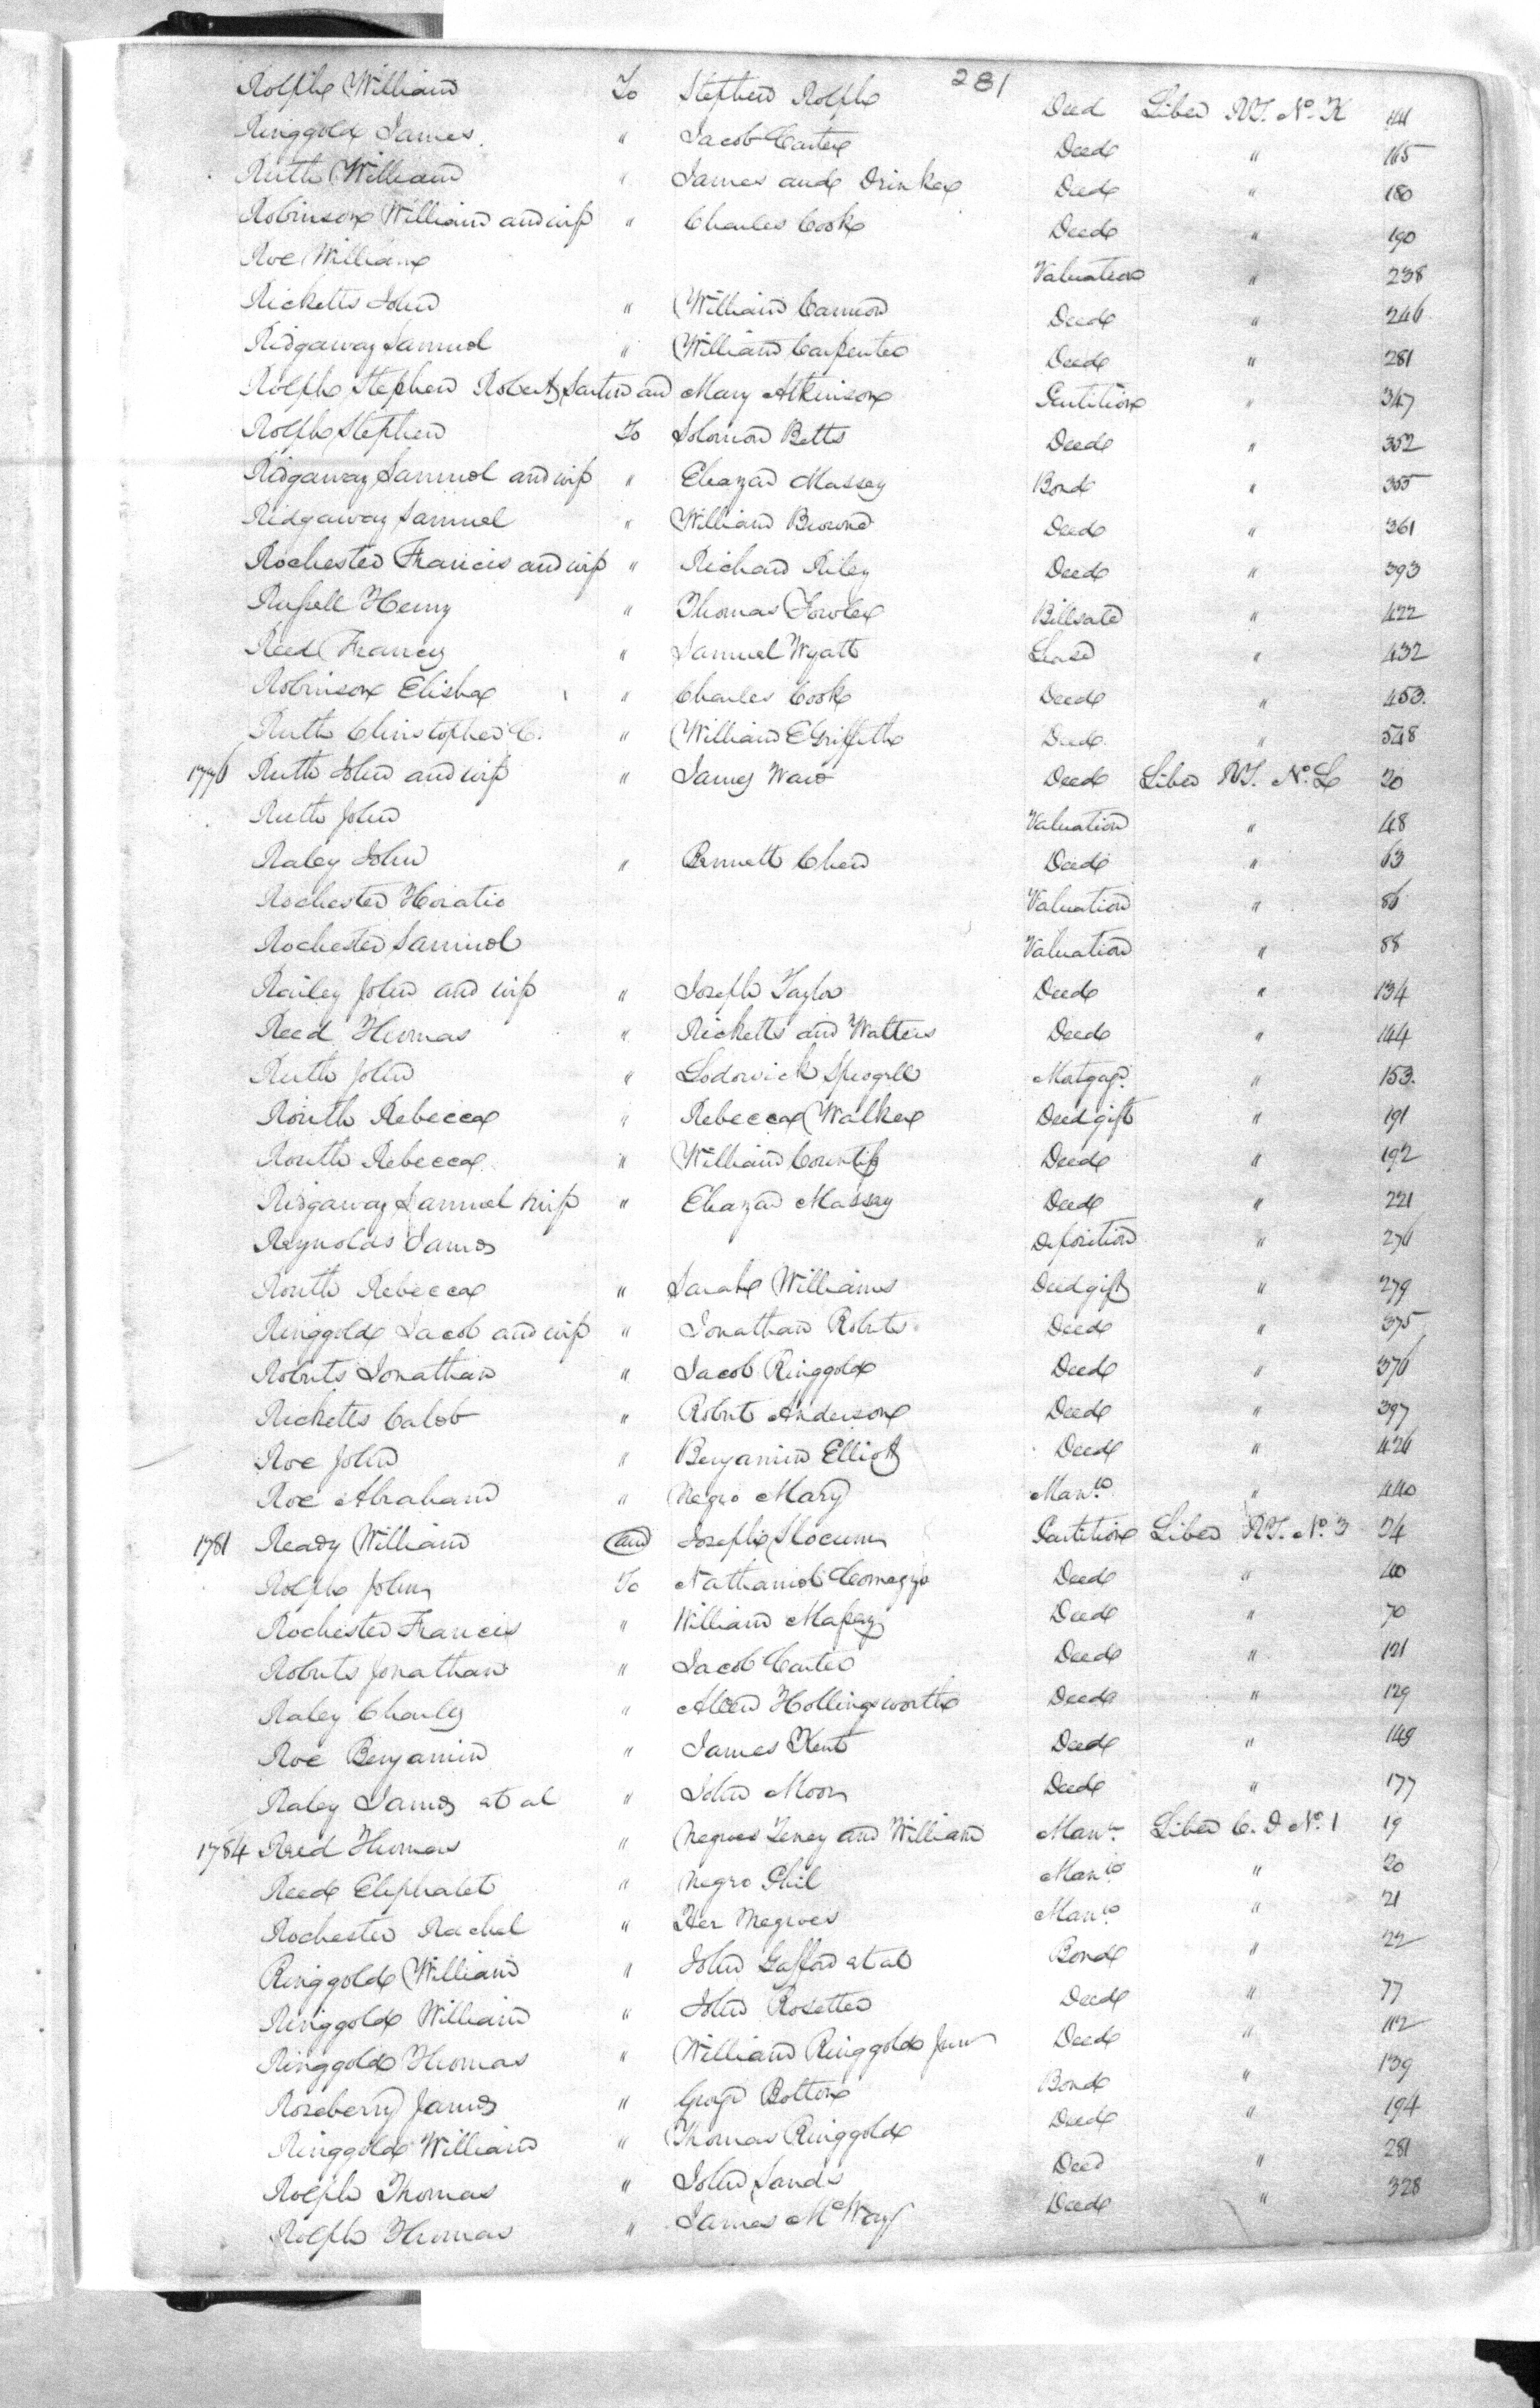 281
Rolph William To Stephen Rolph Deed Liber RT. No. K
Ringgold James " Jacob Carter Deed " 165
Ruth William " James and Drinker Deed " 180
Robinson William and wife " Charles Cook Deed " 190
Roe William Valuation " 238
Ricketts John " William Cannon Deed " 246
Ridgaway Samuel " William Carpenter Deed " 281
Rolph Stephen Robert Sartin and Mary Atkinson Partition " 347
Rolph Stephen To Solomon Betts Deed " 352
Ridgaway Samuel and wife " Eleazar Massey Bond " 355
Ridgaway Samuel " William Brown Deed " 361
Rochester Francis and wife " Richard Riley Deed " 393
Russell Henry " Thomas Fowler Billsale " 422
Reed Francis " Samuel Wyatt Lease " 432
Robinson Elisha " Charles Cook Deed " 453.
Ruth Christopher C. " William E Griffith Deed " 548
1776 Ruth John and wife " James Ware Deed Liber RT. No. L 20
Ruth John Valuation " 48
Raley John " Bennett Chew Deed " 63
Rochester Horatio Valuation " 86
Rochester Samuel Valuation " 88
Railey John and wife " Joseph Taylor Deed " 134
Reed Thomas " Ricketts and Walters Deed " 144
Ruth John " Lodowick Sprogell Matgage. " 153.
Routh Rebecca " Rebecca Walker Deed gift " 191
Routh Rebecca " William Countiss Deed " 192
Ridgaway Samuel wife " Eleazar Massey Deed " 221
Reynolds James Deposition " 276
Routh Rebecca " Sarah Williams Deed gift " 279
Ringgold Jacob and wife " Jonathan Roberts Deed " 375
Roberts Jonathan " Jacob Ringgold Deed " 376
Ricketts Caleb " Robert Anderson Deed " 397
Roe John " Benjamin Elliott Deed " 426
Roe Abraham " Negro Mary Man.io " 440
1781 Ready William and Joseph Slocum Partition Liber RT. No. 3 34
Rolph John To Nathaniel Comegys Deed " 40
Rochester Francis " William Massey Deed " 70
Roberts Jonathan " Jacob Carter Deed " 121
Raley Charles " Allen Hollingsworth Deed " 129
Roe Benjamin " James Kent Deed " 149
Raley James et al " John Moor Deed " 177
1784 Reed Thomas " Negroes and William Man. Liber C. D No. 1 19
Reed Eliphalet " Negro Phil Man.io " 20
Rochester Rachel " Her Negroes Man.io " 21
Ringgold William " John Gafford et al Bond " 22
Ringgold William " John Rosetter Deed " 77
Ringgold Thomas " William Ringgold Junr Deed " 112
Roseberry James " George Bolton Bond " 139
Ringgold William " Thomas Ringgold Deed " 194
Rolph Thomas " John Sands Deed " 281
Rolph Thomas " James Deed " 328